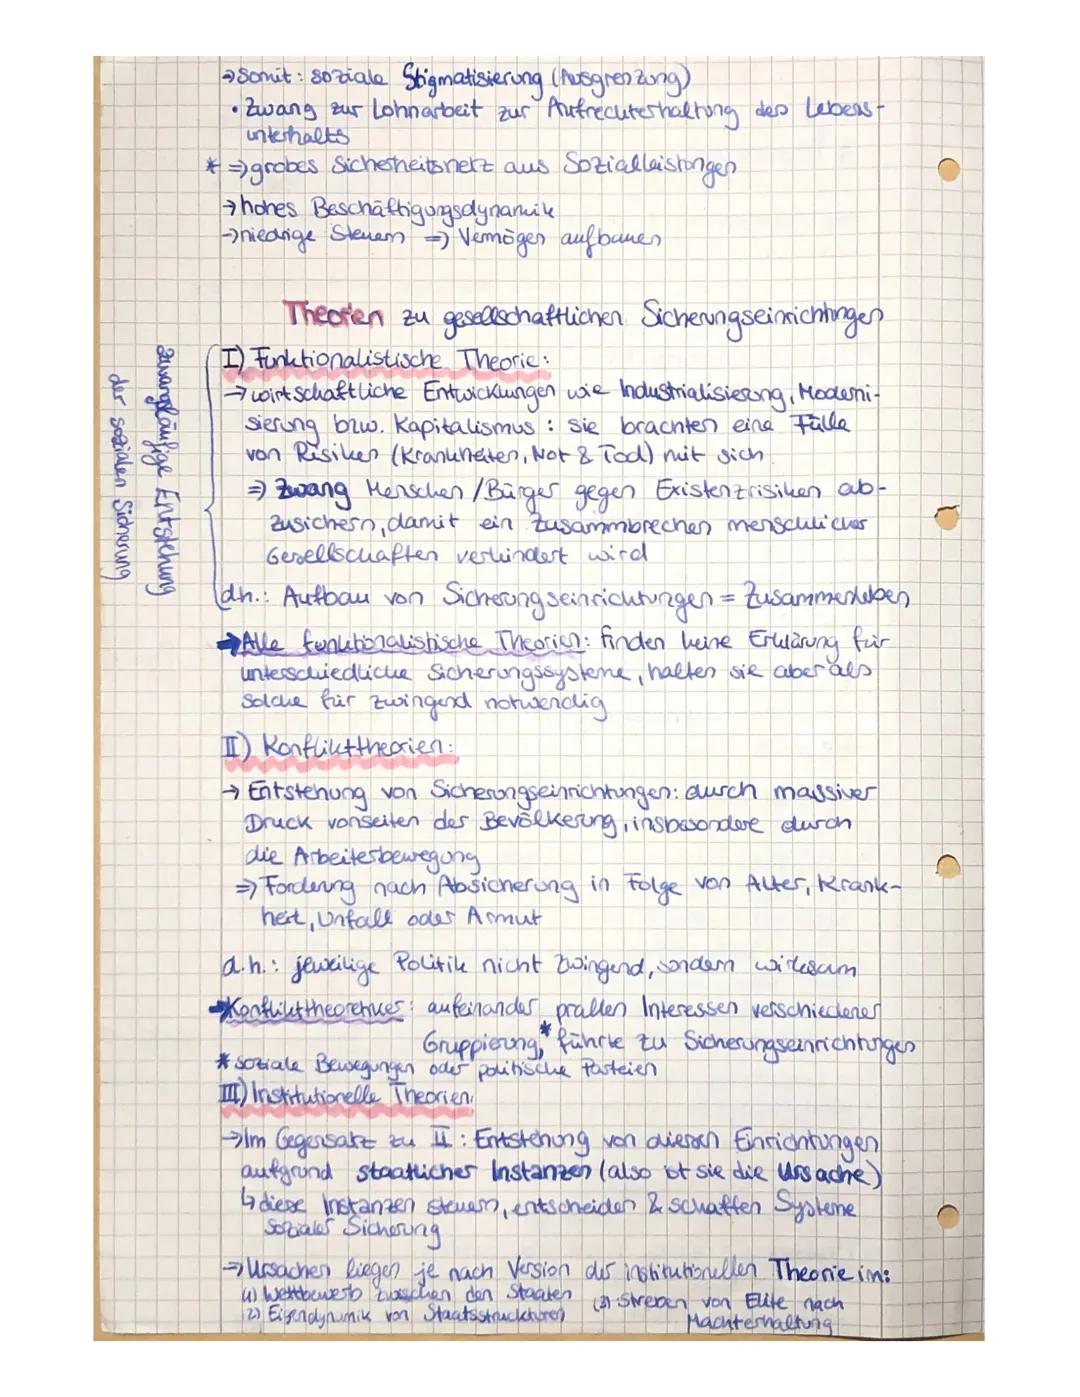 → somit: soziale Stigmatisierung (Ausgrenzung)
• Zwang zur Lohnarbeit zur Aufrechterhaltung des Lebens-
unterhalts
* ⇒ grobes Sicherheitsnetz aus Sozialleistungen
→ hohes Beschäftigungsdynamik
→ niedrige Steuern ⇒ Vermögen aufbauen
Theorien zu gesellschaftlichen Sicherungseinrichtungen
zwangsläufige Entstehung
der sozialen Sicherung
I) Funktionalistische Theorie:
→ wirtschaftliche Entwicklungen wie Industrialisierung, Moderni-
sierung bzw. Kapitalismus : sie brachten eine Fülle
von Risiken (Krankheiten, Not & Tod) mit sich
⇒ Zwang Menschen / Bürger gegen Existenzrisiken ab-
zusichern, damit ein Zusammbrechen menschlicher
Gesellschaften verhindert wird
dh.: Aufbau von Sicherungseinrichtungen = Zusammenleben
→ Alle funktionalistische Theorien: finden keine Erklärung für
unterschiedliche Sicherungssysteme, halten sie aber als
solche für zwingend notwendig
II) Konflikttheorien:
→ Entstehung von Sicherungseinrichtungen: durch massiver
Druck vonseiten der Bevölkerung, insbesondere durch
die Arbeiterbewegung
⇒ Forderung nach Absicherung in Folge von Alter, Krank-
heit, Unfall oder Armut
d.h.: jeweilige Politik nicht zwingend, sondern wirksam
→ Konflikttheoretiker: aufeinander prallen Interessen verschiedener
Gruppierung,* führte zu Sicherungseinrichtungen
* soziale Bewegungen oder politische Parteien
III) Institutionelle Theorien:
→ Im Gegensatz zu II : Entstehung von diesen Einrichtungen
aufgrund staatlicher Instanzen (also ist sie die Ursache)
↳ diese Instanzen steuern, entscheiden & schaffen Systeme
sozialer Sicherung
→ Ursachen liegen je nach Version der institutionellen Theorie im:
(1) Wettbewerb zwischen den Staaten (3) Streben von Elite nach
(2) Eigendynamik von Staatsstrukturen Machterhaltung